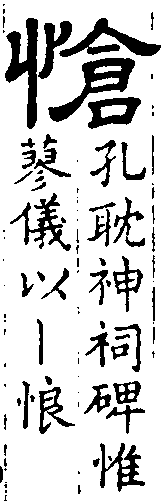 愴
孔耽神祠碑惟
蓼儀以丨悢